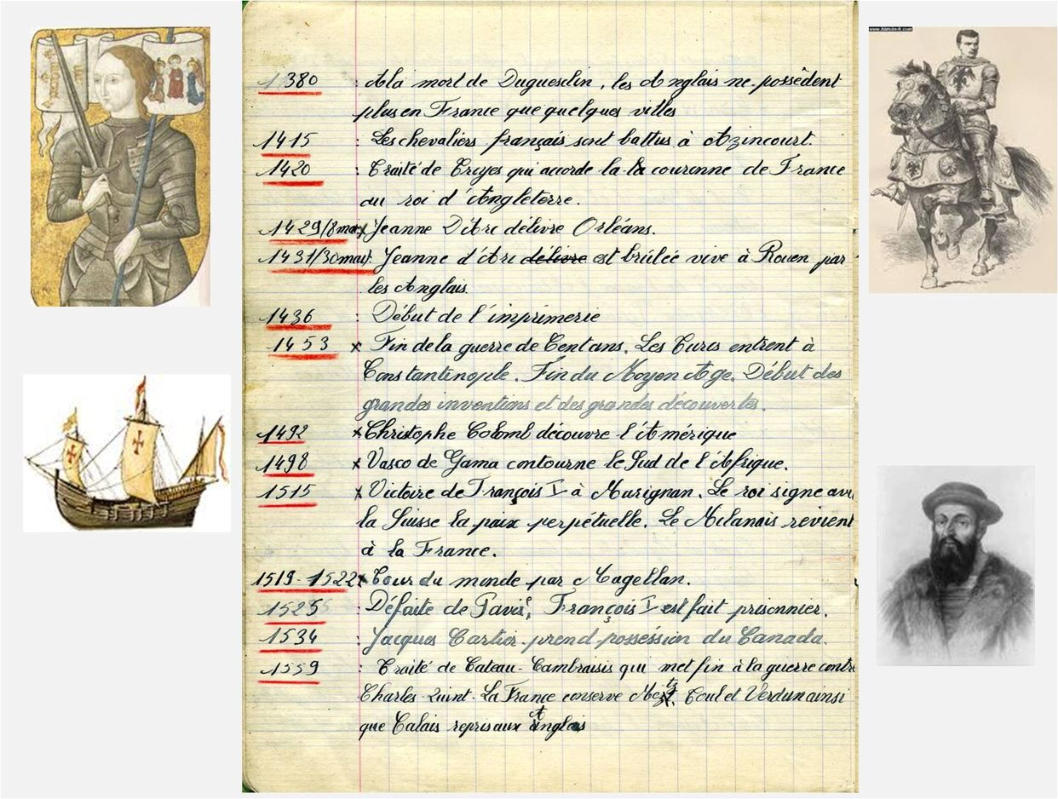 1380 : A la mort de Duguesclin, les Anglais ne possèdent
plus en France que quelques villes
1415 : Les chevaliers français sont battus à Azincourt.
1420 : Traité de Troyes qui accorde la la couronne de France
au roi d'Angleterre.
1429/8 mai x Jeanne D'Arc délivre Orléans.
1431/30 mai Jeanne d'Arc délivre est brûlée vive à Rouen par
les Anglais.
1436 : Début de l'imprimerie
1453 x Fin de la guerre de Cent ans. Les Turcs entrent à
Constantinople. Fin du Moyen Age. Début des
grandes inventions et des grandes découvertes.
1492 x Christophe Colomb découvre l'Amérique
1498 x Vasco de Gama contourne le Sud de l'Afrique.
1515 x Victoire de François Ier à Marignan. Le roi signe ave
la Suisse la paix perpétuelle. Le Milanais revient
à la France.
1519-1522 x Tour du monde par Magellan.
1525 : Défaite de Pavie, François Ier est fait prisonnier.
1534 : Jacques Cartier prend possession du Canada.
1559 : Traité de Cateau-Cambraisis qui met fin à la guerre contre
Charles-Quint. La France conserve Metz, Toul et Verdun ainsi
que Calais repris aux Anglais